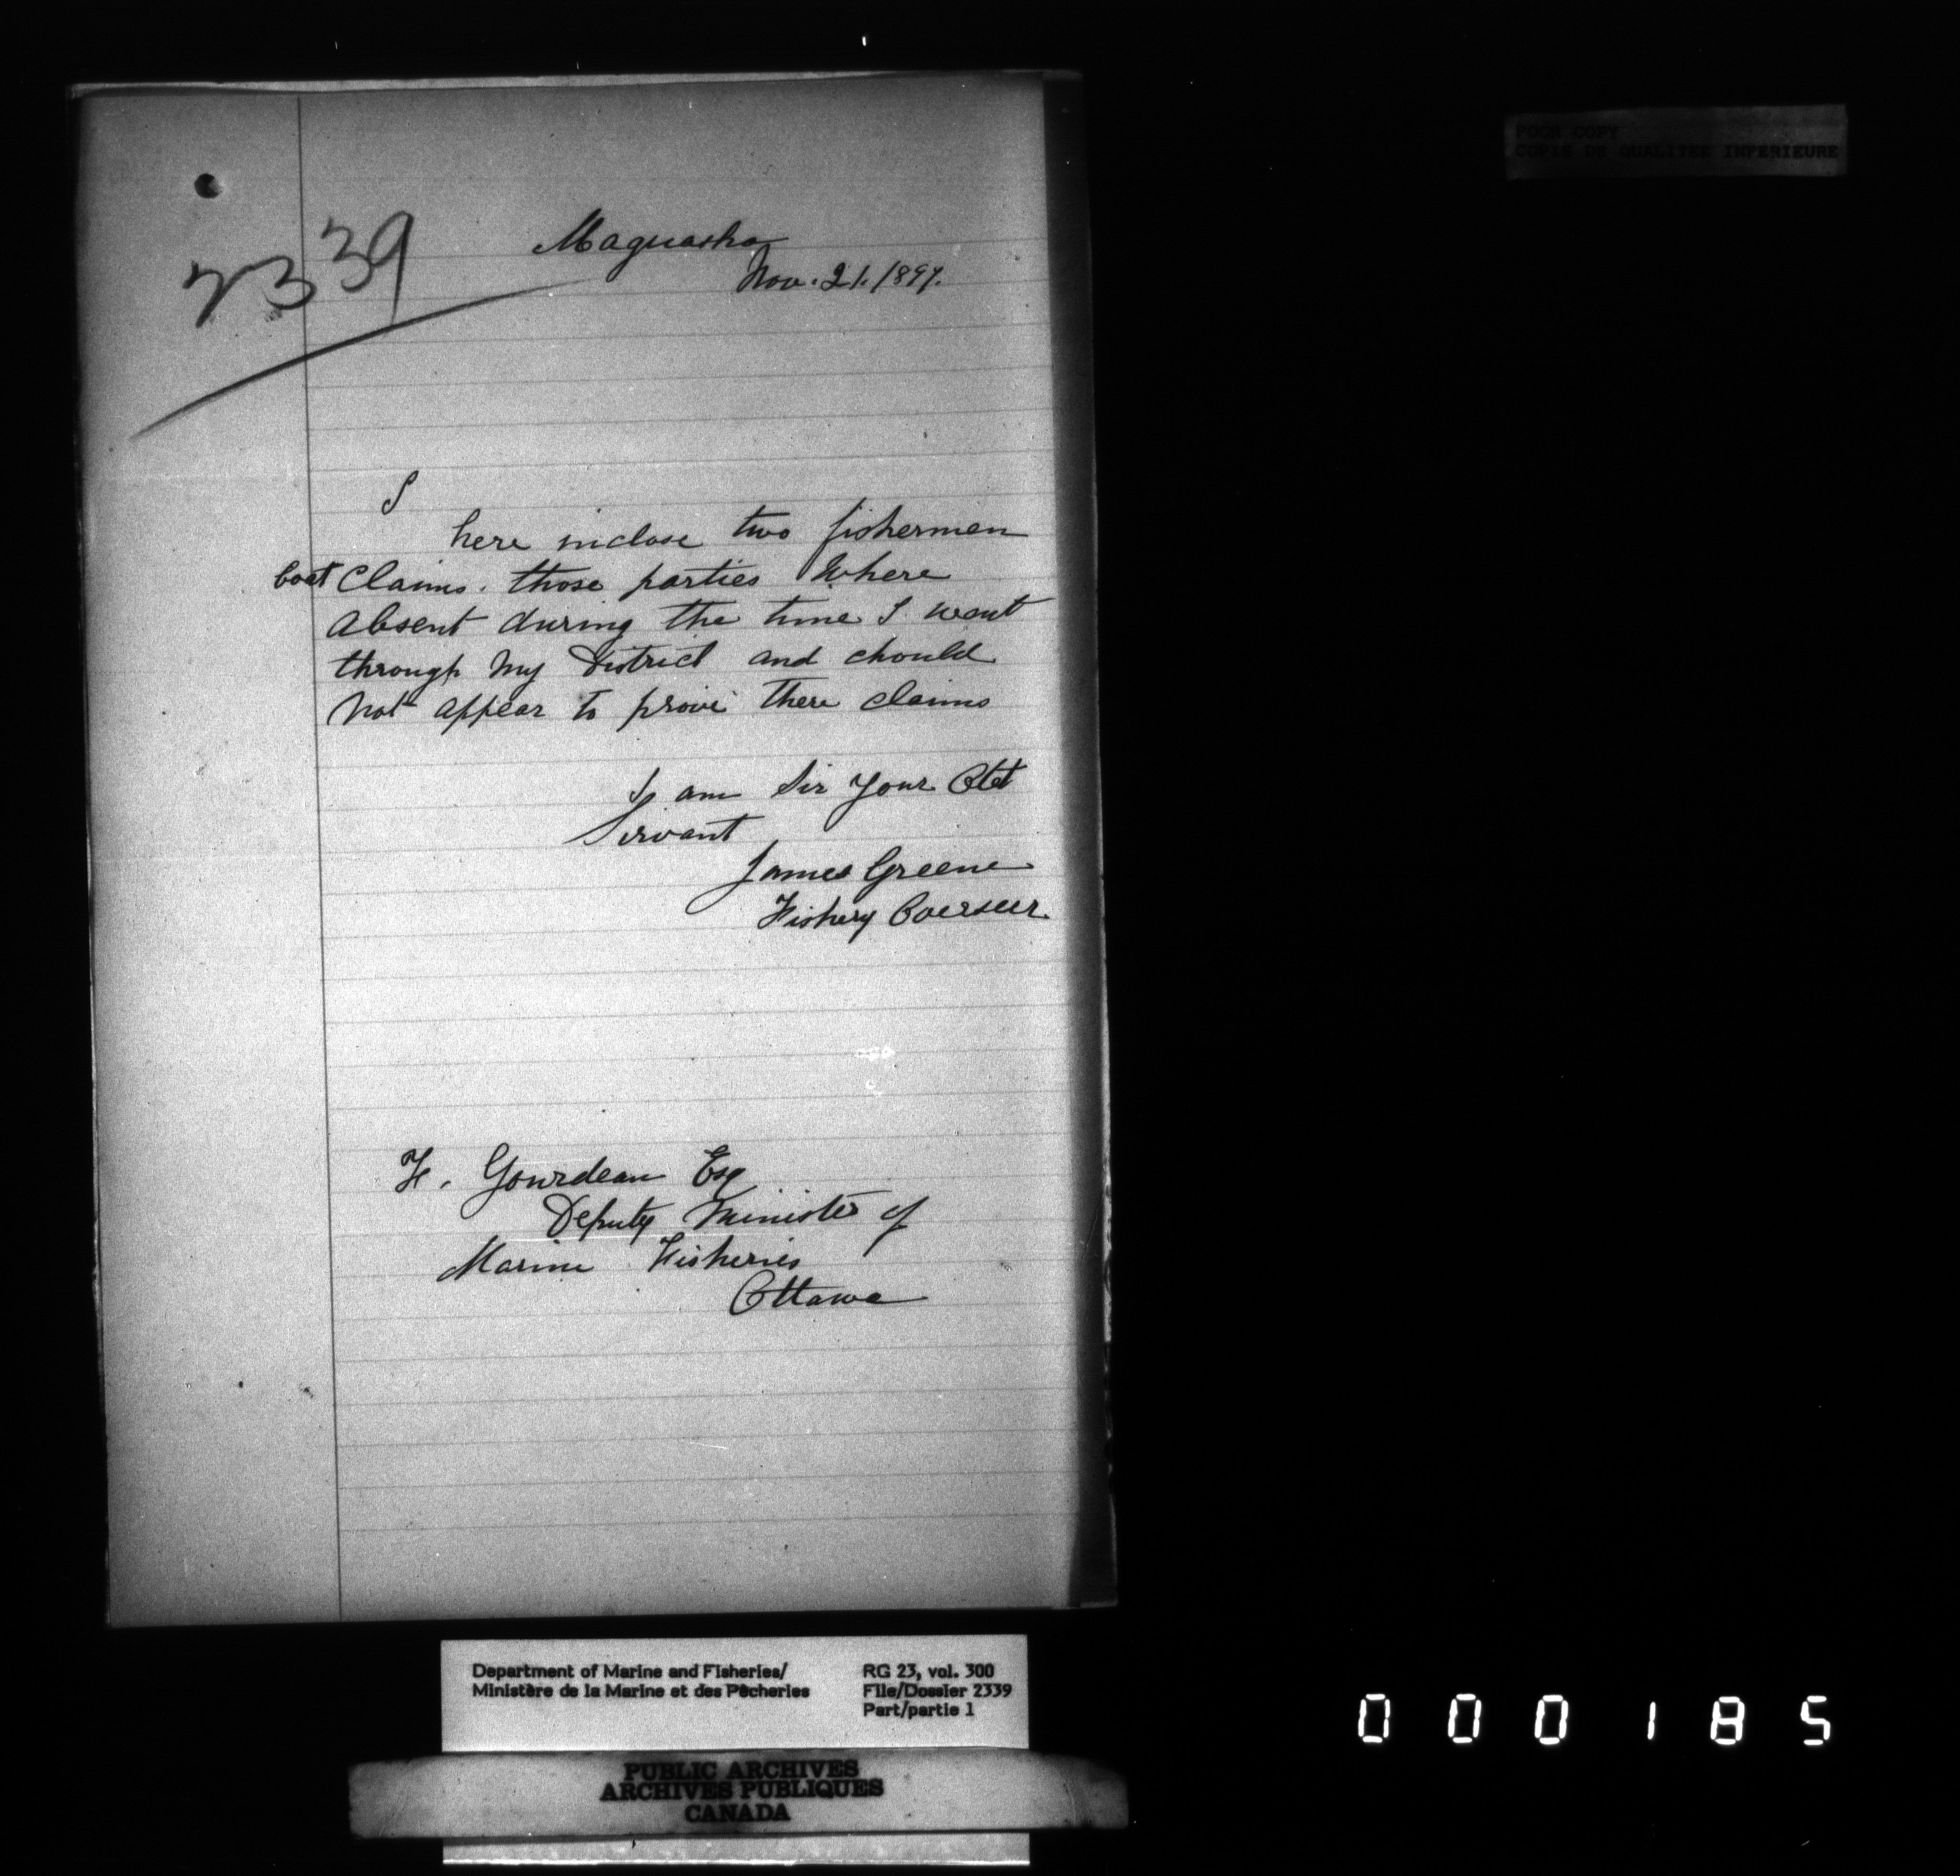 POOR COPY
COPIE DE QUALITEE INFERIEURE
2339
Maguasha
Nov. 21. 1897.
I
here inclose two fishermen
boat Claims. those parties Where
absent during the time I went
through My District and chould
Not appear to prove there claims
I am Sir Your Obt
Servant
James Greene
Fishery Overseer
F. Gourdeau Esq
Deputy Minister of
Marine Fisheries
Ottawa
Department of Marine and Fisheries/
Ministère de la Marine et des Pêcheries
RG 23, vol. 300
File/Dossier 2339
Part/partie 1
PUBLIC ARCHIVES
ARCHIVES PUBLIQUES
CANADA
000185